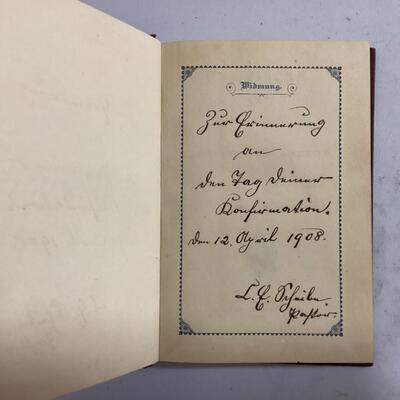 Widmung.
Zur Erinnerung
an
den Tag deiner
Konfirmation.
den 12. April 1908.
C. E. Scheibe.
Pastor.